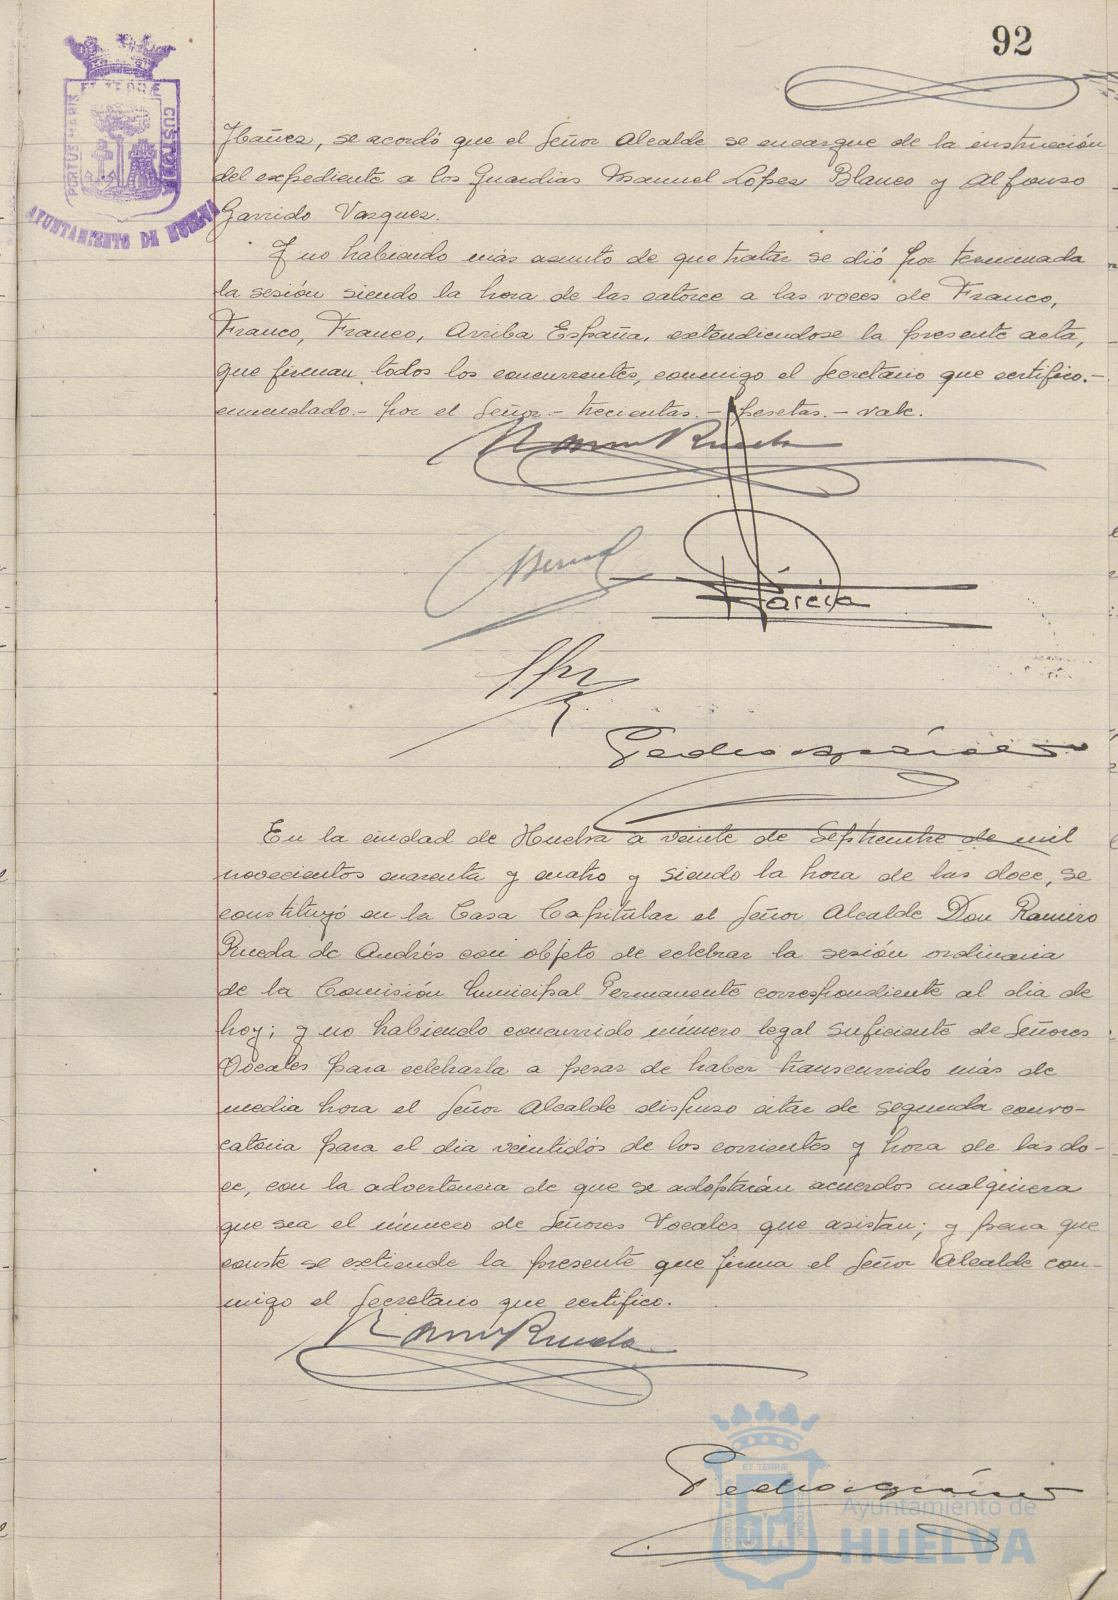 92
PORTUS MARIS ET TERRÆ CUSTODIA
AYUNTAMIENTO DE HUELVA
Ibañez, se acordó que el Señor Alcalde se encargue de la instrucción
del expediente a los Guardias Manuel López Blanco y Alfonso
Garrido Vazquez.
Y no habiendo más asunto de que tratar se dió por terminada
la sesión siendo la hora de las catorce a las voces de Franco,
Franco, Franco, Arriba España, extendiendose la presente acta,
que firman todos los concurrentes, conmigo el Secretario que certifico.-
enmendado.- por el Señor.- trecientas.- pesetas.- vale.
Ramiro Rueda
García
En la ciudad de Huelva a veinte de Septiembre de mil
novecientos cuarenta y cuatro y siendo la hora de las doce, se
constituyó en la Casa Capitular el Señor Alcalde Don Ramiro
Rueda de Andrés con objeto de celebrar la sesión ordinaria
de la Comisión Municipal Permanente correspondiente al dia de
hoy; y no habiendo concurrido número legal suficiente de Señores
Vocales para celebrarla a pesar de haber transcurrido más de
media hora el Señor Alcalde dispuso citar de segunda convo-
catoria para el dia veintidós de los corrientes y hora de las do-
ce, con la advertencia de que se adoptarán acuerdos cualquiera
que sea el número de Señores Vocales que asistan; y para que
conste se extiende la presente que firma el Señor Alcalde con-
migo el Secretario que certifico.
Ramiro Rueda
Ayuntamiento de
HUELVA